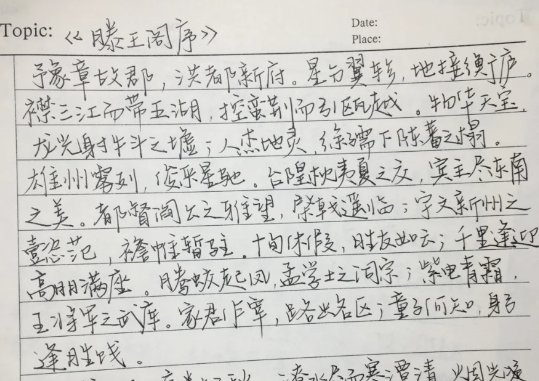 Topic: 《滕王阁序》
Date:
Place:
豫章故郡，洪都新府。星分翼轸，地接衡庐。
襟三江而带五湖，控蛮荆而引瓯越。物华天宝，
龙光射牛斗之墟；人杰地灵，徐孺下陈蕃之榻。
雄州雾列，俊采星驰。台隍枕夷夏之交，宾主尽东南
之美。都督阎公之雅望，棨戟遥临；宇文新州之
懿范，襜帷暂驻。十旬休假，胜友如云；千里逢迎
高朋满座。腾蛟起凤，孟学士之词宗；紫电青霜，
王将军之武库。家君作宰，路出名区；童子何知，躬
逢胜饯。
潦水尽而寒潭清，烟光凝